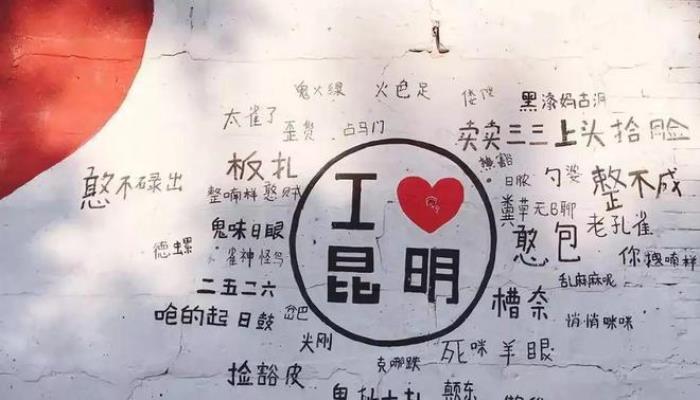 鬼火绿
火色足
太雀了
歪货
占马门
黑漆妈古洞
卖卖三三
上头
拾脸
憨不碌出
板扎
整喃样
憨贼
日脓
勺婆
整不成
粪草
无日聊
老孔雀
鬼味日眼
I
昆明
憨包
你
德螺
雀神怪鸟
乱麻麻呢
二五二六
槽奈
呛的起
日鼓
岔巴
悄悄咪咪
尖刚
死咪羊眼
克哪跌
捡豁皮
颠东